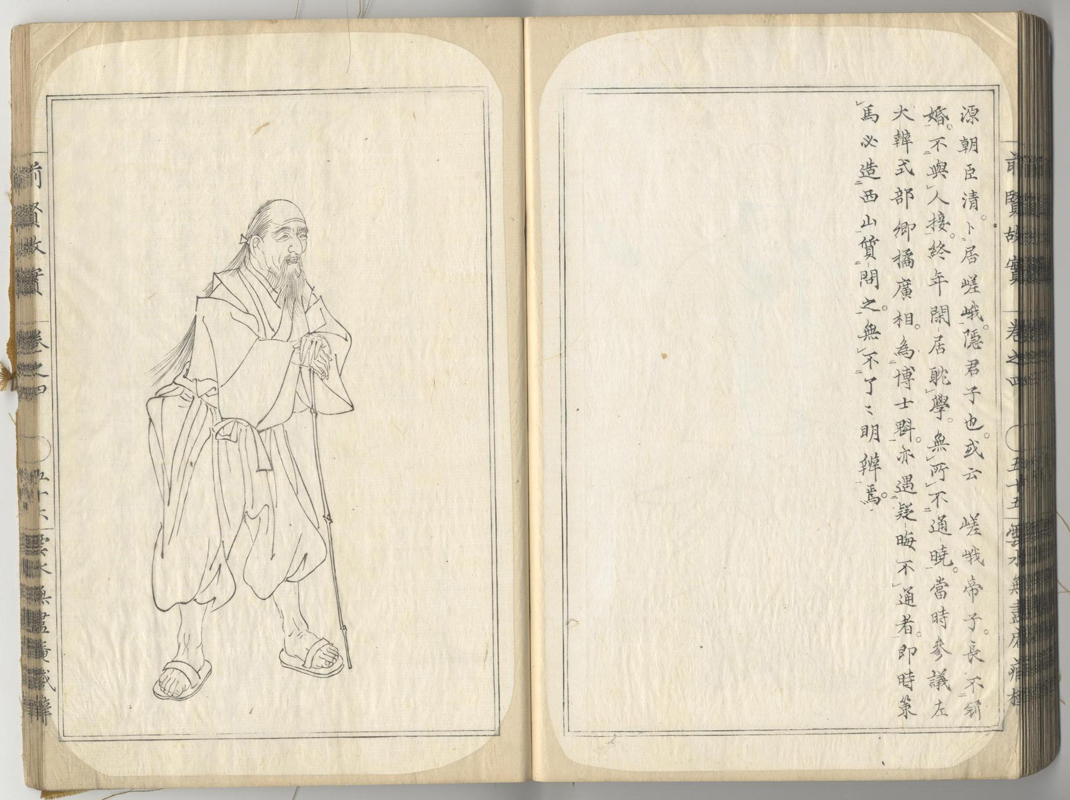 前賢故實 卷之四 五十五 雲水無盡庵藏
源朝臣清。卜居嵯峨。隱君子也。或云 嵯峨帝子。長不
婚。不與人接。終年閑居耽學。無所不通曉。當時參議左
大辨式部卿橘廣相。為博士 亦遇疑晦不通者。即時策
馬必造西山質問之。無不了〻明辨焉。
前賢故實 卷之四 五十六 雲水無盡